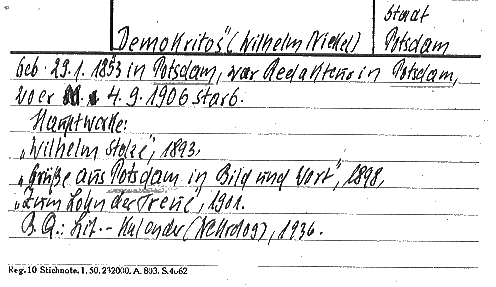 Stadt
„Demokritos" (Wilhelm Nickel)
Potsdam
Geb. 29.1.1853 in Potsdam, war Redakteur in Potsdam,
wo er 4.9.1906 starb.
Hauptwerke:
„Wilhelm Stolze", 1893,
„Grüße aus Potsdam in Bild und Wort", 1898,
„Zum Lohn der Treue", 1901.
B.Q.: Lit.-Kalender (Nekrolog), 1936.
Reg. 10 Stichnote. 1. 50. 232000. A. 803. S. 4062